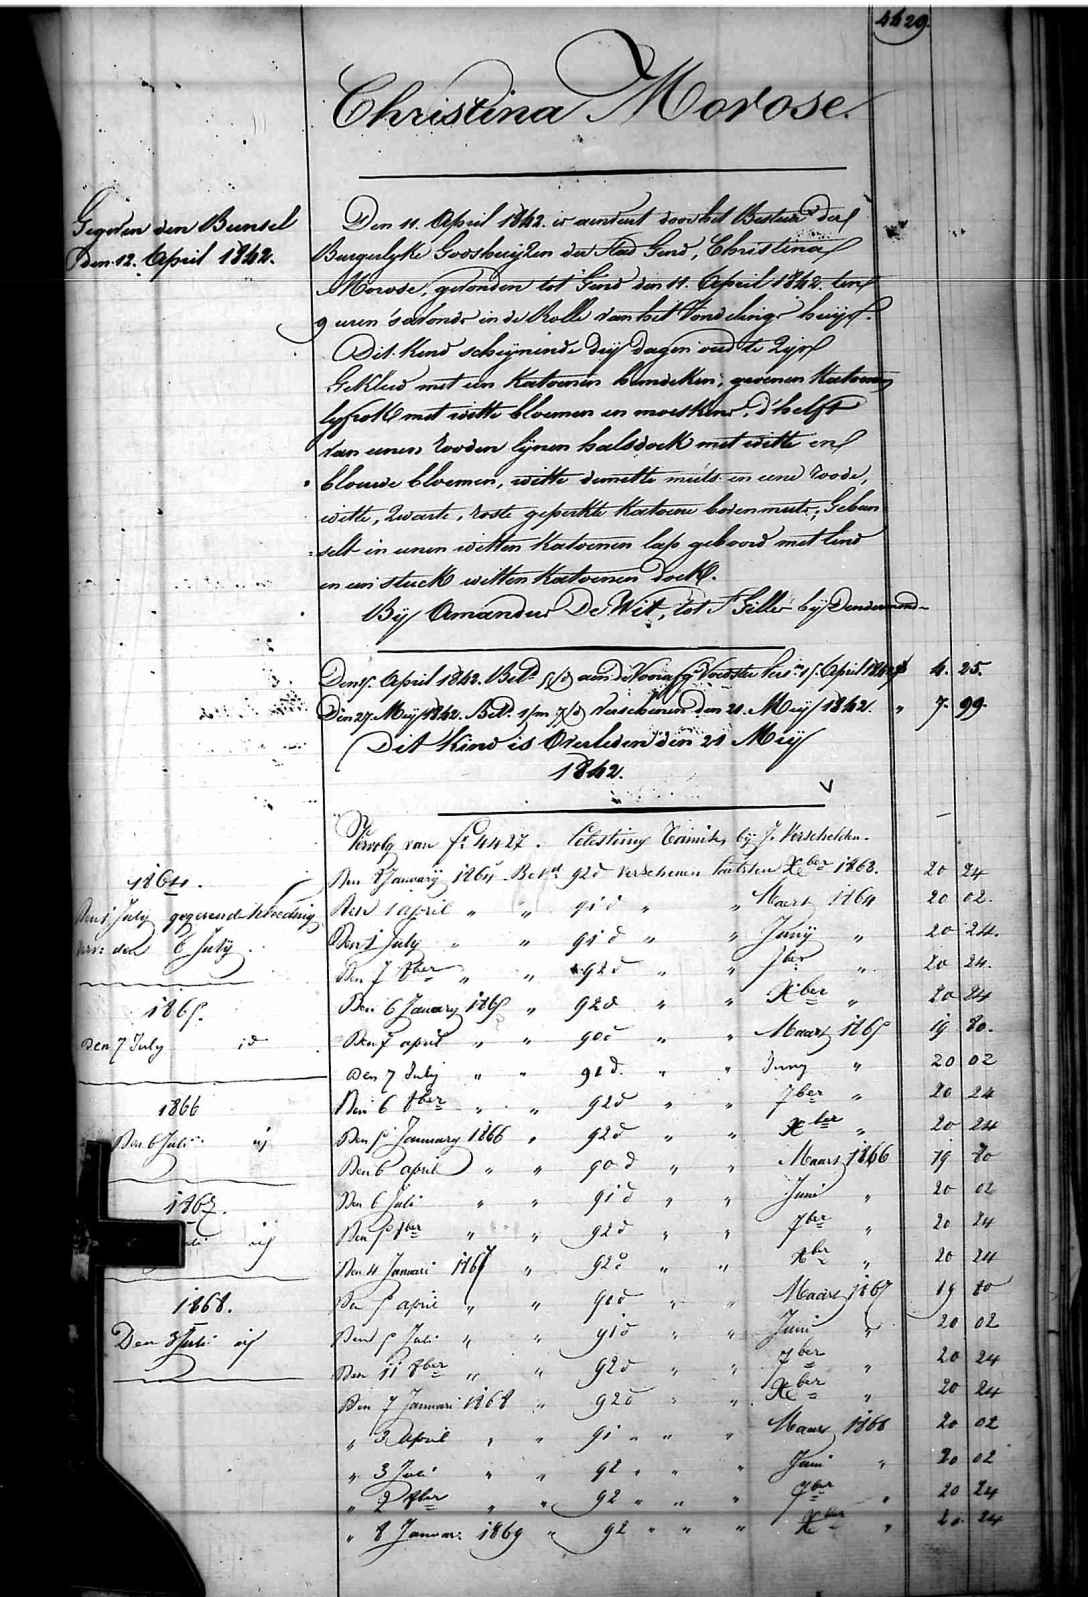 4629.
Christina Morose.
Gegeven den Bunsel
den 12. April 1842.
Den 11. April 1842. is aenveert door het Bestier der
Burgerlyke Godshuijzen der Stad Gend, Christina
Morose, gevonden tot Gend den 11. April 1842. ten
9 uren 's avonds in de Rolle van het Vondelings huijs.
Dit Kind schijnende dry dagen oud te zijn
Gekleed met een Katoenen hemdeken, Katoenen
lyfrok met witte bloemen en d'helft
van eenen rooden lijnen halsdoek met witte en
blouwe bloemen, witte demette muts en eene roode,
witte, zwarte, roste geperkte Katoene bovenmuts; Gebun
selt in eenen witten Katoenen lap geboord met lind
en een stuck witten Katoenen doek.
Bij Amandus De Wit, tot St Gillis bij Dendermond
Den 15. April 1842. Betd aan de Voorst. 15. April 1842 4. 25.
Den 27. Meij 1842. Bet. Verschenen den 21. Meij 1842. " 7. 99.
Dit Kind is Overleden den 21 Meij
1842.
Vervolg van fo 4427. Celestine bij J. Verschelden.
Den 8 January 1864 Betd 92 d Verschenen laatsten Xber 1863. 20 24
1864.
Den 1 April " " 91 d " " Maart 1864 20 02.
Den 1 July gegeven de kleeding
Den 1 July " " 91 d " " Junij " 20 24.
vers: den 6 July
Den 7 8ber " " 92 d " " 7ber " 20 24.
1865.
Den 6 January 1865 " 92 d " " Xber " 20 24
Den 7 July id
Den 7 april " " 90 d " " Maart 1865 19 80.
Den 7 July " " 91 d. " " Juny " 20 02
1866
Den 6 8ber " " 92 d " " 7ber " 20 24
Den 6 Juli id
Den 5 January 1866 " 92 d " " Xber " 20 24
Den 6 april " " 90 d " " Maart 1866 19 80
1867.
Den 6 Juli " " 91 d " " Juni " 20 02
Den 5 8ber " " 92 d " " 7ber " 20 24
Den 4 Januari 1867 " 92 d " " Xber " 20 24
1868.
Den 5 april " " 90 d " " Maart 1867 19 80
Den 3 Juli id
Den 5 Juli " " 91 d " " Juni " 20 02
Den 11 8ber " " 92 d " " 7ber " 20 24
Den 7 Januari 1868 " 92 d " " Xber " 20 24
" 3 April " " 91 " " " Maart 1868 20 02
" 3 Juli " " 92 " " " Juni " 20 02
" 2 8ber " " 92 " " " 7ber " 20 24
" 8 Januar: 1869 " 92 " " " Xber " 20 24